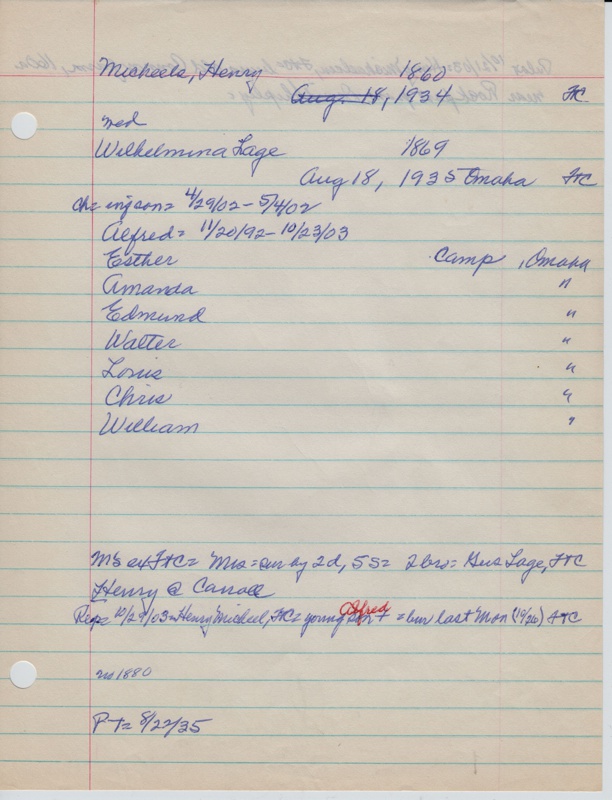 Micheels, Henry 1860
Aug. 18, 1934 FtC
md
Wilhelmina Lage 1869
Aug 18, 1935 Omaha FtC
ch= inf son= 4/29/02 - 5/4/02
Alfred= 11/20/92 - 10/23/03
Esther Camp, Omaha
Amanda "
Edmund "
Walter "
Louis "
Chris "
William "
M's of FtC= Mrs= sur by 2d, 5s= 2 bro= Gus Lage, FtC
Henry @ Carroll
Rep= 10/29/03= Henry Micheel, FtC= young son + Alfred = bur last Mon (10/26) FtC
no 1880
PT= 8/22/35